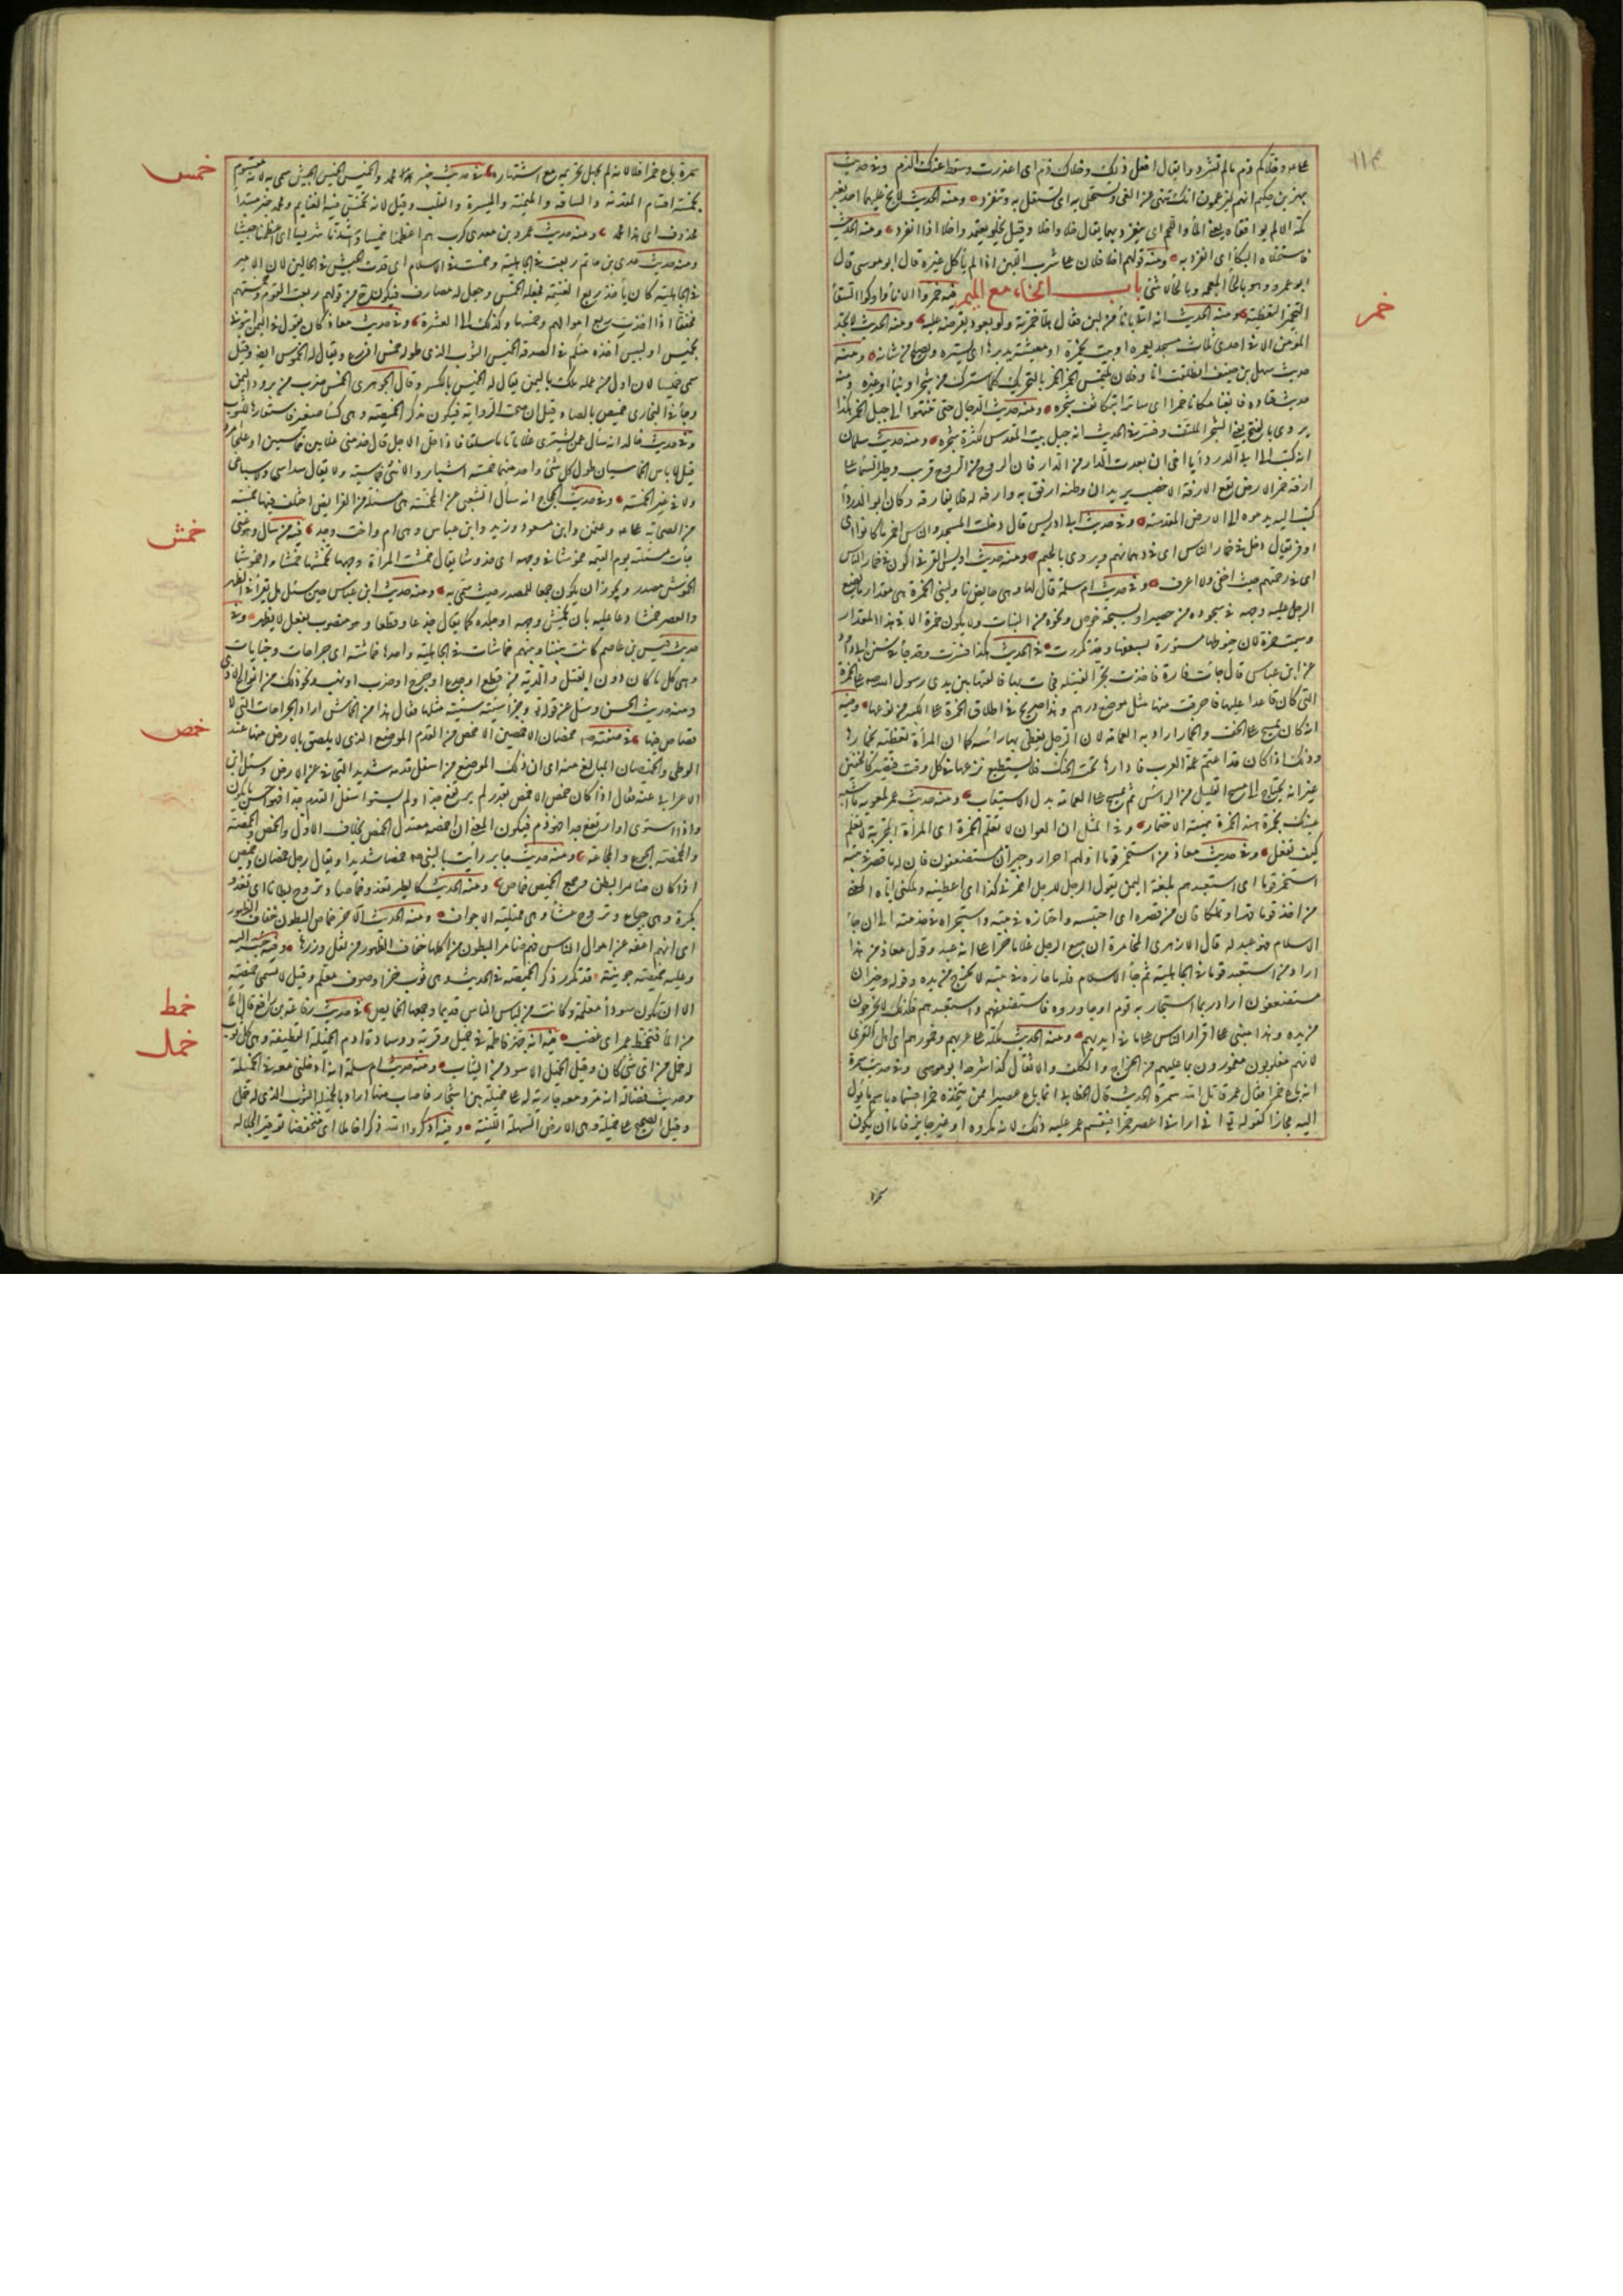 ١١٤
علمه وخلاكم ذم ما لم تشردوا يقال افعل ذلك وخلاك ذم اى اعذرت وسقط عنك الذم وفى حديث
بهز بن حكيم انهم ليزعمون انك تنهى عن الغى وتستخلى به اى تستقل به وتنفرد ومنه الحديث لا يخلو عليهما احد بغير
مكة الا لم يوافقاه يعنى الماء واللحم اى ينفرد بهما يقال خلا واخلا وقيل يخلو يعتمد واخلا اذا انفرد ومنه الحديث
فاستخلاه البكاء اى انفرد به ومنه قولهم اخلا فلان على شرب اللبن اذا لم يأكل غيره قال ابو موسى قال
ابو عمرو وهو بالخاء المعجمة وبالحاء لا شئ باب الخاء مع الميم فيه خمروا الاناء واوكوا السقاء
خمر
التخمير التغطية ومنه الحديث انه اتى باناء من لبن فقال هلا خمرته ولو بعود يعرضه عليه ومنه الحديث لا تجد
المؤمن الا فى احدى ثلاث مسجد يعمره او بيت يخمره او معيشة يدبرها اى يستره ويصلح من شانه ومنه
حديث سهل بن حنيف انطلقت انا وفلان نلتمس الخمر الخمر بالتحريك كلما سترك من شجر او بناء او غيره ومنه
حديث قتادة فابغنا مكانا خمرا اى ساترا بتكاثف شجره ومنه حديث الدجال حتى تنتهوا الى جبل الخمر هكذا
يروى بالفتح يعنى الشجر الملتف وفسر فى الحديث انه جبل بيت المقدس لكثرة شجره ومنه حديث سلمان
انه كتب الى ابى الدرداء يا اخى ان بعدت الدار من الدار فان الروح من الروح قريب وطير السماء على
ارفه خمر الارض تقع الارفة الاخصب يريد ان وطنه ارفق به وارفه له فلا يفارقه وكان ابو الدرداء
كتب اليه يدعوه الى الارض المقدسة وفى حديث ابى ادريس قال دخلت المسجد والناس اخمر ما كانوا اى
اوفر يقال دخل فى خمار الناس اى فى دهمائهم ويروى بالجيم ومنه حديث اويس القرنى اكون فى خمار الناس
اى فى زحمتهم حيث اخفى ولا اعرف وفى حديث ام سلمة قال لها وهى حايض ناولينى الخمرة هى مقدار ما يضع
الرجل عليه وجهه فى سجوده من حصير او نسيجة خوص ونحوه من النبات ولا يكون خمرة الا فى هذا المقدار
وسميت خمرة لان خيوطها مستورة بسعفها وقد تكررت فى الحديث هكذا فسرت وقد جاء فى سنن ابى داود
عن ابن عباس قال جاءت فارة فاخذت تجر الفتيلة فجاءت بها فالقتها بين يدى رسول الله ص على الخمرة
التى كان قاعدا عليها فاحرقت منها مثل موضع درهم وهذا صريح فى اطلاق الخمرة على الكبير من نوعها وفيه
انه كان يمسح على الخف والخمار اراد به العمامة لان الرجل يغطى بها راسه كما ان المرأة تغطيه بخمارها
وذلك اذا كان قد اعتم عمة العرب فادارها تحت الحنك فلا يستطيع نزعها فى كل وقت فتصير كالخفين
غير انه يحتاج الى مسح القليل من الراس ثم يمسح على العمامة بدل الاستيعاب ومنه حديث عمر لمعوية ما اشبه
عينك بخمرة هند الخمرة هيئة الاختمار وفى المثل ان العوان لا تعلم الخمرة اى المرأة المجربة لا تعلم
كيف تفعل وفى حديث معاذ من استخمر قوما اولهم احرار وجيران مستضعفون فان له ما قصر فى بيته
استخمر قوما اى استعبدهم بلغة اليمن يقول الرجل للرجل اخمرنى كذا اى اعطنيه وملكنى اياه المعنى
من اخذ قوما قهرا وتملكا فان من قصره اى احتبسه واحتازه فى بيته واستجراه فى خدمته الى ان جاء
الاسلام فهو عبد له قال الازهرى المخامرة ان يبيع الرجل غلاما حرا على انه عبد وقول معاذ من هذا
اراد من استعبد قوما فى الجاهلية ثم جاء الاسلام فله ما حازه فى بيته لا يخرج من يده وقوله وجيران
مستضعفون اراد ربما استجار به قوم او جاوروه فاستضعفهم واستعبدهم فلذلك لا يخرجون
من يده وهذا مبنى على اقرار الناس على ما فى ايديهم ومنه الحديث ملكه على عربهم وخمورهم اى اهل القرى
لانهم مغلوبون مغمورون بما عليهم من الخراج والكلف والاثقال كذا شرحه ابو موسى وفى حديث سمرة
انه باع خمرا فقال عمر قاتل الله سمرة الحديث قال الخطابى انما باع عصيرا ممن يتخذه خمرا فسماه باسم ما يؤل
اليه مجازا كقوله تعالى انى ارانى اعصر خمرا فنقم عمر عليه ذلك لانه مكروه او غير جايز فاما ان يكون
سمرة
سمرة باع خمرا فلا لانه لم يجهل تحريمه مع اشتهاره فى حديث خيبر محمد والخميس الخميس الجيش سمى به لانه مقسوم
خمس
بخمسة اقسام المقدمة والساقة والميمنة والميسرة والقلب وقيل لانه تخمس فيه الغنايم ومحمد خبر مبتدا
محذوف اى هذا محمد ومنه حديث عمرو بن معدى كرب هم اعظمنا خميسا واشدنا شريسا اى اعظمنا جيشا
ومنه حديث عدى بن حاتم ربعت فى الجاهلية وخمست فى الاسلام اى قدت الجيش فى الحالين لان الامير
فى الجاهلية كان ياخذ ربع الغنيمة فجعله الخمس وجعل له مصارف فيكون من قولهم ربعت القوم وخمستهم
مخففا اذا اخذت ربع اموالهم وخمسها وكذلك الى العشرة وفى حديث معاذ كان يقول فى اليمن ايتونى
بخميس او لبيس آخذه منكم فى الصدقة الخميس الثوب الذى طوله خمس اذرع ويقال له الخموس ايضا وقيل
سمى خميسا لان اول من عمله ملك باليمن يقال له الخمس بالكسر وقال الجوهرى الخمس ضرب من برود اليمن
وجاء فى البخارى خميص بالصاد قيل ان صحت الرواية فيكون مذكر الخميصة وهى كساء صغير فاستعارها للثوب
وفى حديث خالد انه سأل عمن يشترى غلاما تاما سلفا فاذا حل الاجل قال خذ منى غلامين خماسيين او علجا امرد
قيل لا باس الخماسيان طول كل شئ واحد منهما خمسة اشبار والانثى خماسية ولا يقال سداسى وسباعى
ولا فى غير الخمسة وفى حديث الحجاج انه سأل الشعبى عن المخمسة هى مسئلة من الفرايض اختلف فيها خمسة
من الصحابة على وعثمن وابن مسعود وزيد وابن عباس وهى ام واخت وجد فيه من سأل وهو غنى
خمش
جاءت مسئلته يوم القيمة خموشا فى وجهه اى خدوشا يقال خمشت المرأة وجهها تخمشها خمشا وخموشا
الخموش مصدر ويجوز ان يكون جمعا للمصدر حيث سمى به ومنه حديث ابن عباس حين سئل هل يقرأ فى الظهر
والعصر خمشا دعا عليه بان يخمش وجهه او جلده كما يقال جدعا وقطعا وهو منصوب بفعل لا يظهر وفى
حديث قيس بن عاصم كانت بيننا وبينهم خماشات فى الجاهلية واحدها خماشة اى جراحات وجنايات
وهى كل ما كان دون القتل والدية من قطع او جدع او جرح او ضرب او نهب ونحو ذلك من انواع الاذى
ومنه حديث الحسن وسئل عن قوله تعالى وجزاء سيئة سيئة مثلها فقال هذا من الخماش اراد الجراحات التى لا
قصاص فيها فى صفته ص خمصان الاخمصين الاخمص من القدم الموضع الذى لا يلصق بالارض منها عند
خمص
الوطى والخمصان المبالغ منه اى ان ذلك الموضع من اسفل قدمه شديد التجافى عن الارض وسئل ابن
الاعرابى عنه فقال اذا كان خمص الاخمص بقدر لم يرتفع جدا ولم يستو اسفل القدم جدا فهو احسن ما يكون
واذا استوى او ارتفع جدا فهو ذم فيكون المعنى ان اخمصه معتدل الخمص بخلاف الاول والخمص والخمصة
والمخمصة الجوع والمجاعة ومنه حديث جابر رأيت بالنبى ص خمصا شديدا ويقال رجل خمصان وخميص
اذا كان ضامر البطن وجمع الخميص خماص ومنه الحديث كالطير تغدو خماصا وتروح بطانا اى تغدو
بكرة وهى جياع وتروح عشاء وهى ممتلية الاجواف ومنه الحديث الآخر خماص البطون خفاف الظهور
اى انهم اعفه عن اموال الناس فهم ضامر البطون من اكلها خفاف الظهور من ثقل وزرها وفيه جئت اليه
وعليه خميصة جونية قد تكرر ذكر الخميصة فى الحديث وهى ثوب خز او صوف معلم وقيل لا تسمى خميصة
الا ان تكون سوداء معلمة وكانت من لباس الناس قديما وجمعها الخمايص فى حديث رفاعة بن رافع قال الماء
خمط
من الماء فتخمط عمر اى غضب فيه انه جهز فاطمة فى خميل وقربة ووسادة ادم الخميلة القطيفة وهى كل ثوب
خمل
له خمل من اى شئ كان وقيل الخميل الاسود من الثياب ومنه حديث ام سلمة انه ادخلنى معه فى الخميلة
وحديث فضالة انه مر ومعه جارية له على خميلة بين اشجار فاصاب منها اراد بالخميلة الثوب الذى له خمل
وقيل الصحيح على خميلة وهى الارض السهلة اللينة وفيه اذكروا الله ذكرا خاملا اى منخفضا توقيرا لجلاله